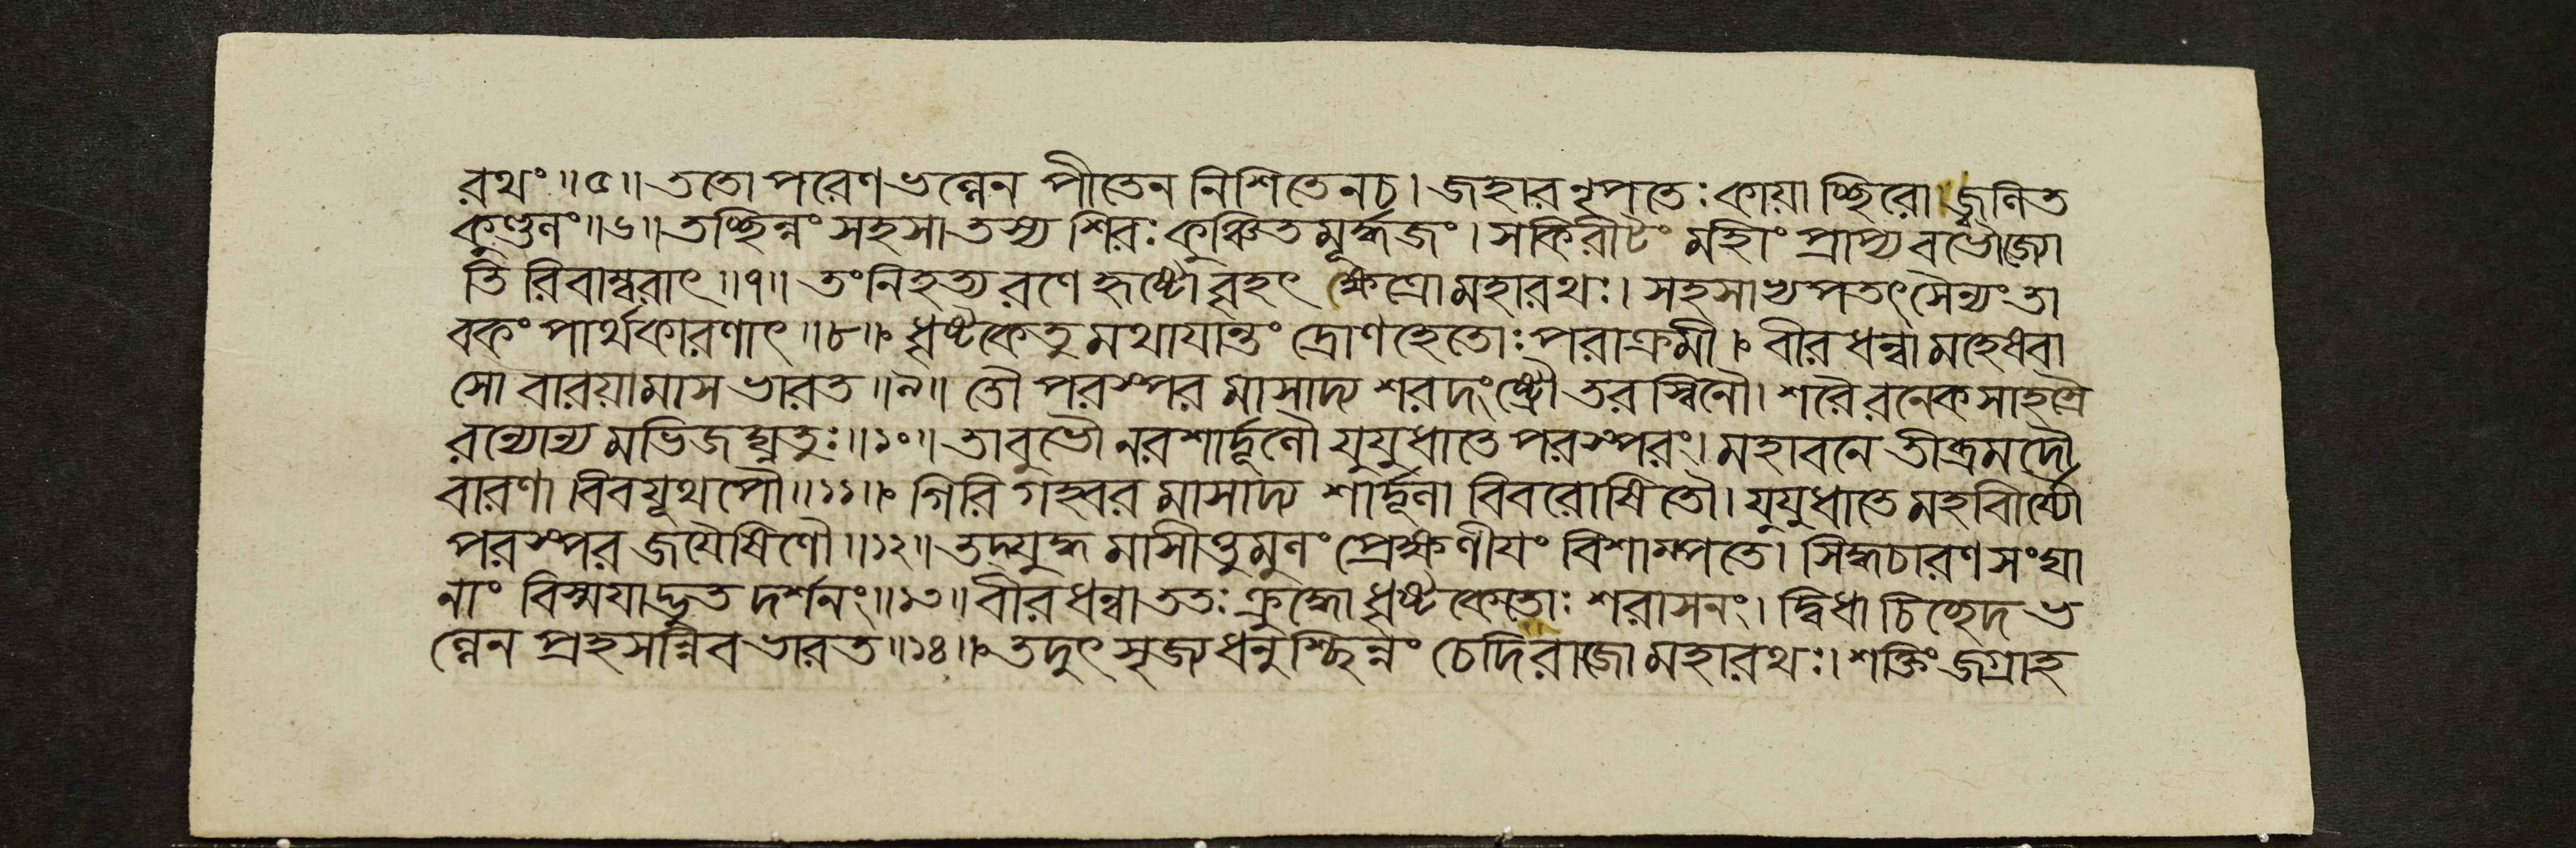 রথং ॥৫॥ ততো পরেণ ভল্লেন পীতেন নিশিতেন চ। জহার নৃপতেঃ কায়াচ্ছিরো জ্বলিত
কুণ্ডলং ॥৬॥ তচ্ছিন্নং সহসা তস্য শিরঃ কুঞ্চিত মূর্দ্ধজং। সকিরীটং মহীং প্রাপ্য বভৌ জ্যো
তি রিবাম্বরাৎ ॥৭॥ তং নিহত্য রণে হৃষ্টো বৃহৎ ক্ষেত্রো মহারথঃ। সহসাভ্যপতৎ সৈন্যং তা
বকং পার্থকারণাৎ ॥৮॥ ধৃষ্টকেতু মথাযান্তং দ্রোণহেতোঃ পরাক্রমী। বীরধন্বা মহেষ্বা
সো বারয়ামাস ভারত ॥৯॥ তৌ পরস্পর মাসাদ্য শরদংষ্ট্রৌ তরস্বিনৌ। শরৈ রনেক সাহস্রৈ
রন্যোন্য মভিজঘ্নতুঃ ॥১০॥ তাবুভৌ নরশার্দ্দূলৌ যুযুধাতে পরস্পরং। মহাবনে তীব্রমদৌ
বারণা বিবযূথপৌ ॥১১॥ গিরি গহ্বর মাসাদ্য শার্দ্দূলা বিবরোষিতৌ। যুযুধাতে মহবীর্য্যৌ
পরস্পর জয়ৈষিণৌ ॥১২॥ তদ্যুদ্ধ মাসীত্তুমুলং প্রেক্ষণীয়ং বিশাম্পতে। সিদ্ধচারণ সংঘা
নাং বিস্ময়াদ্ভুত দর্শনং ॥১৩॥ বীরধন্বা ততঃ ক্রুদ্ধো ধৃষ্টকেতোঃ শরাসনং। দ্বিধা চিচ্ছেদ ভ
ল্লেন প্রহসন্নিব ভারত ॥১৪॥ তদুৎসৃজ্য ধনুশ্ছিন্নং চেদিরাজো মহারথঃ। শক্তিং জগ্রাহ